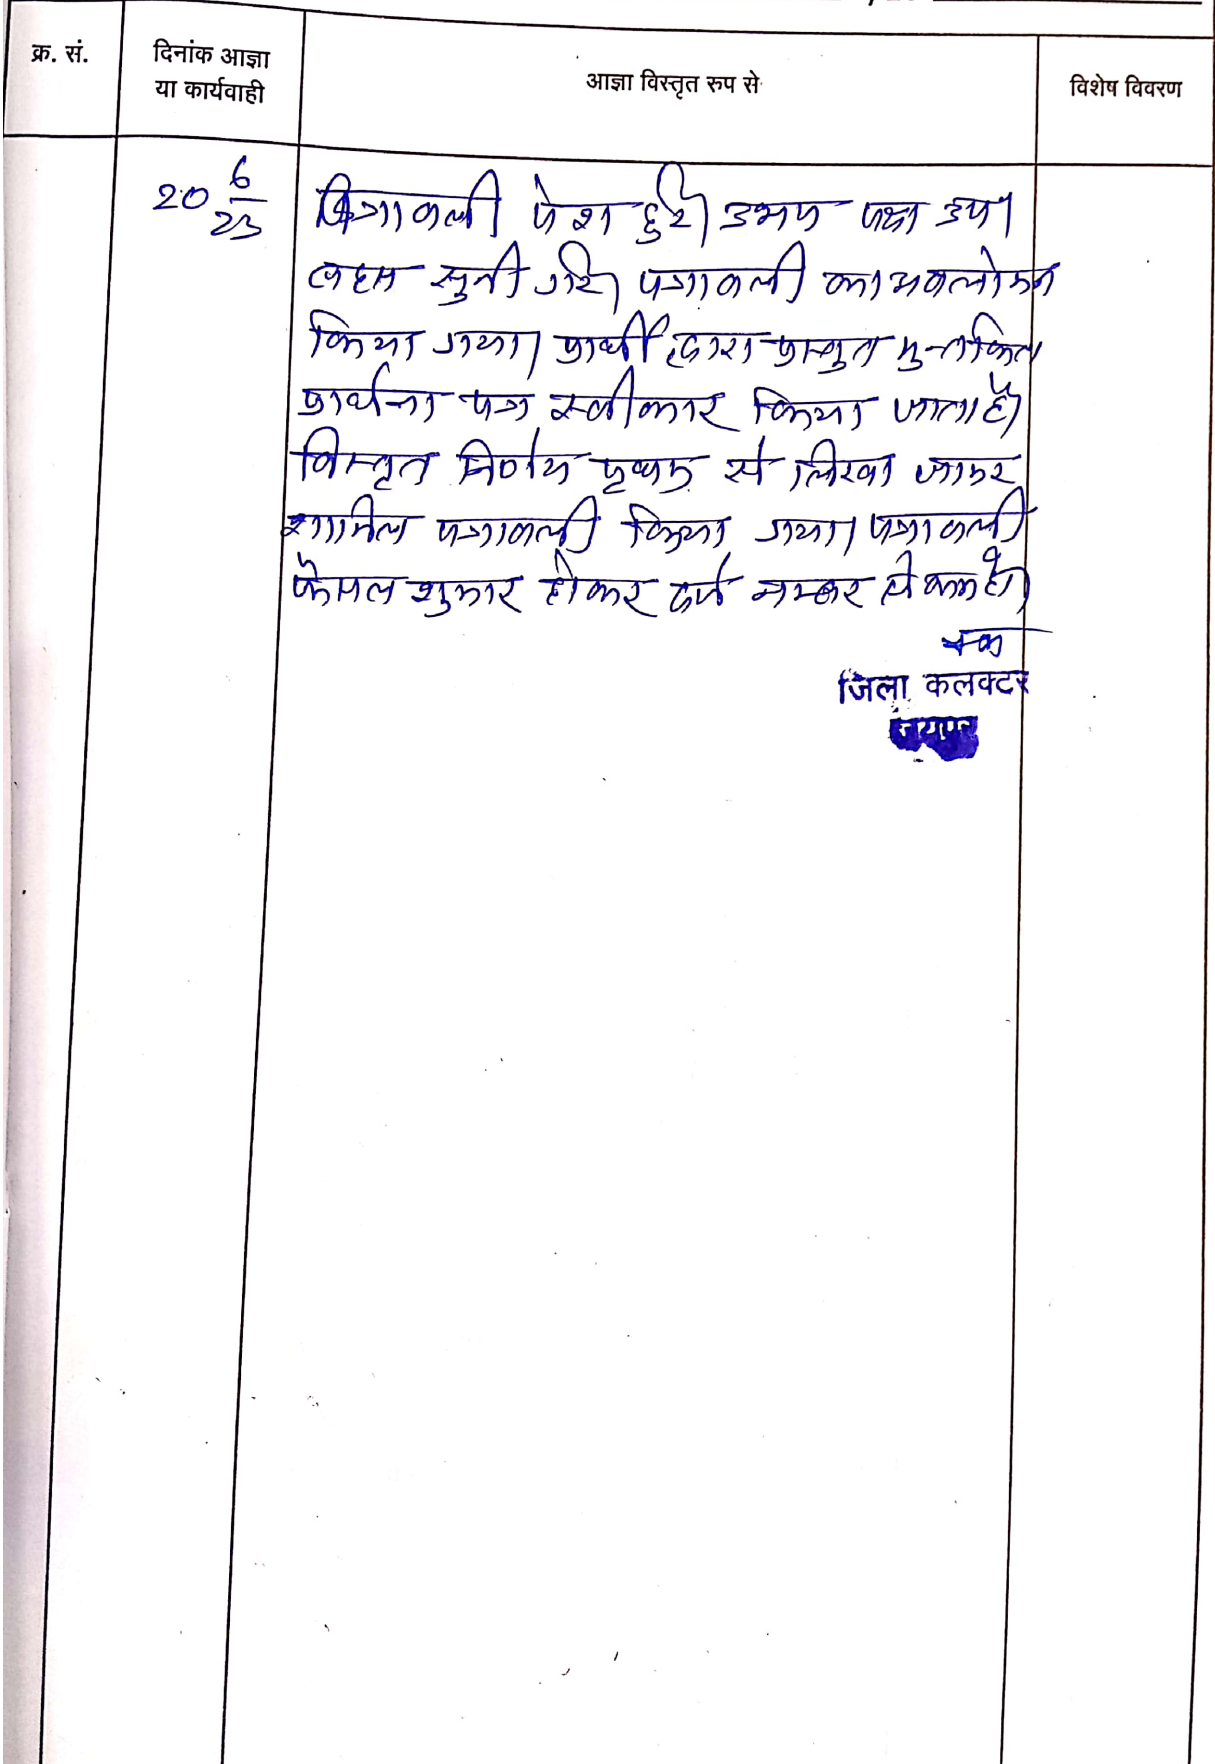 क्र. सं.
दिनांक आज्ञा
या कार्यवाही
आज्ञा विस्तृत रुप से
विशेष विवरण
20 6/23
पत्रावली पेश हुई। उभय पक्ष उप।
बहस सुनी गई। पत्रावली का अवलोकन
किया गया। प्रार्थी द्वारा प्रस्तुत मुन्तकिल
प्रार्थना पत्र स्वीकार किया जाता है।
विस्तृत निर्णय पृथक से लिखा जाकर
शामिल पत्रावली किया गया। पत्रावली
फैसल शुमार होकर दर्ज नम्बर से कम हो।
जिला कलक्टर
जयपुर